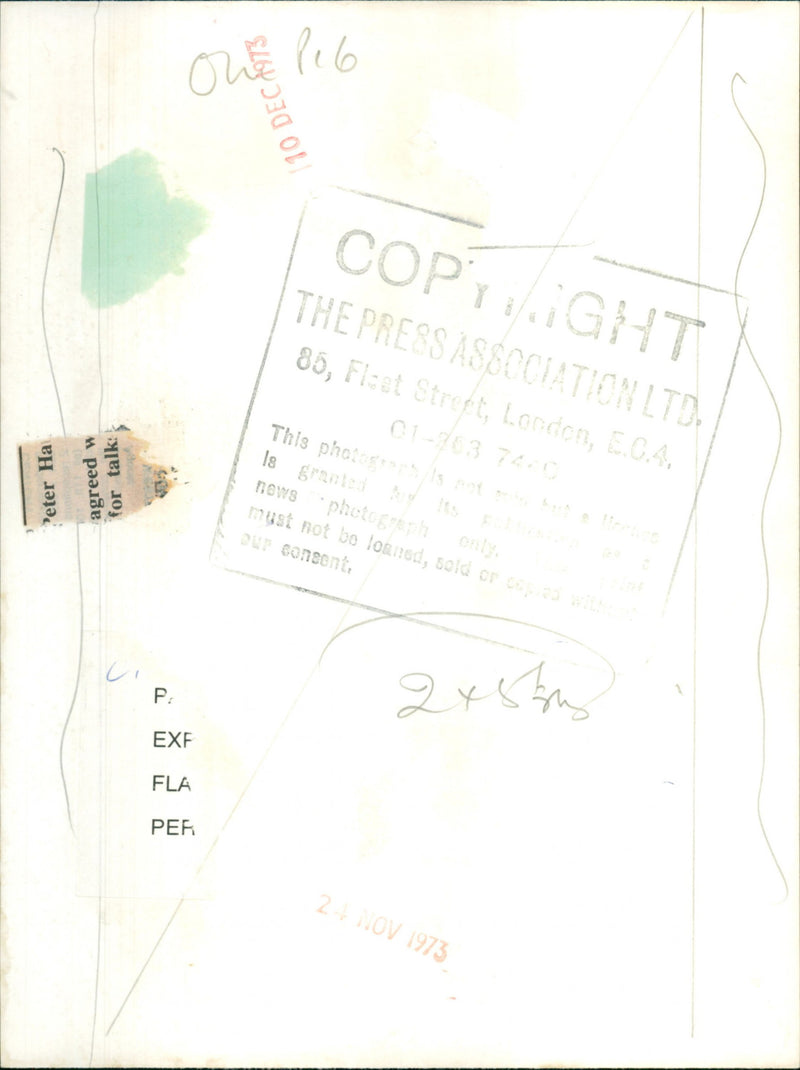 P.6
10 DEC 1973
COPYRIGHT
THE PRESS ASSOCIATION LTD.
85, Fleet Street, London, E.C.4.
This photograph is not sold but a licence
is granted for its publication as a
news photograph only. print
must not be loaned, sold or copied without
our consent.
Peter Ha
agreed w
for talks
P
EXP
FLA
PER
24 NOV 1973